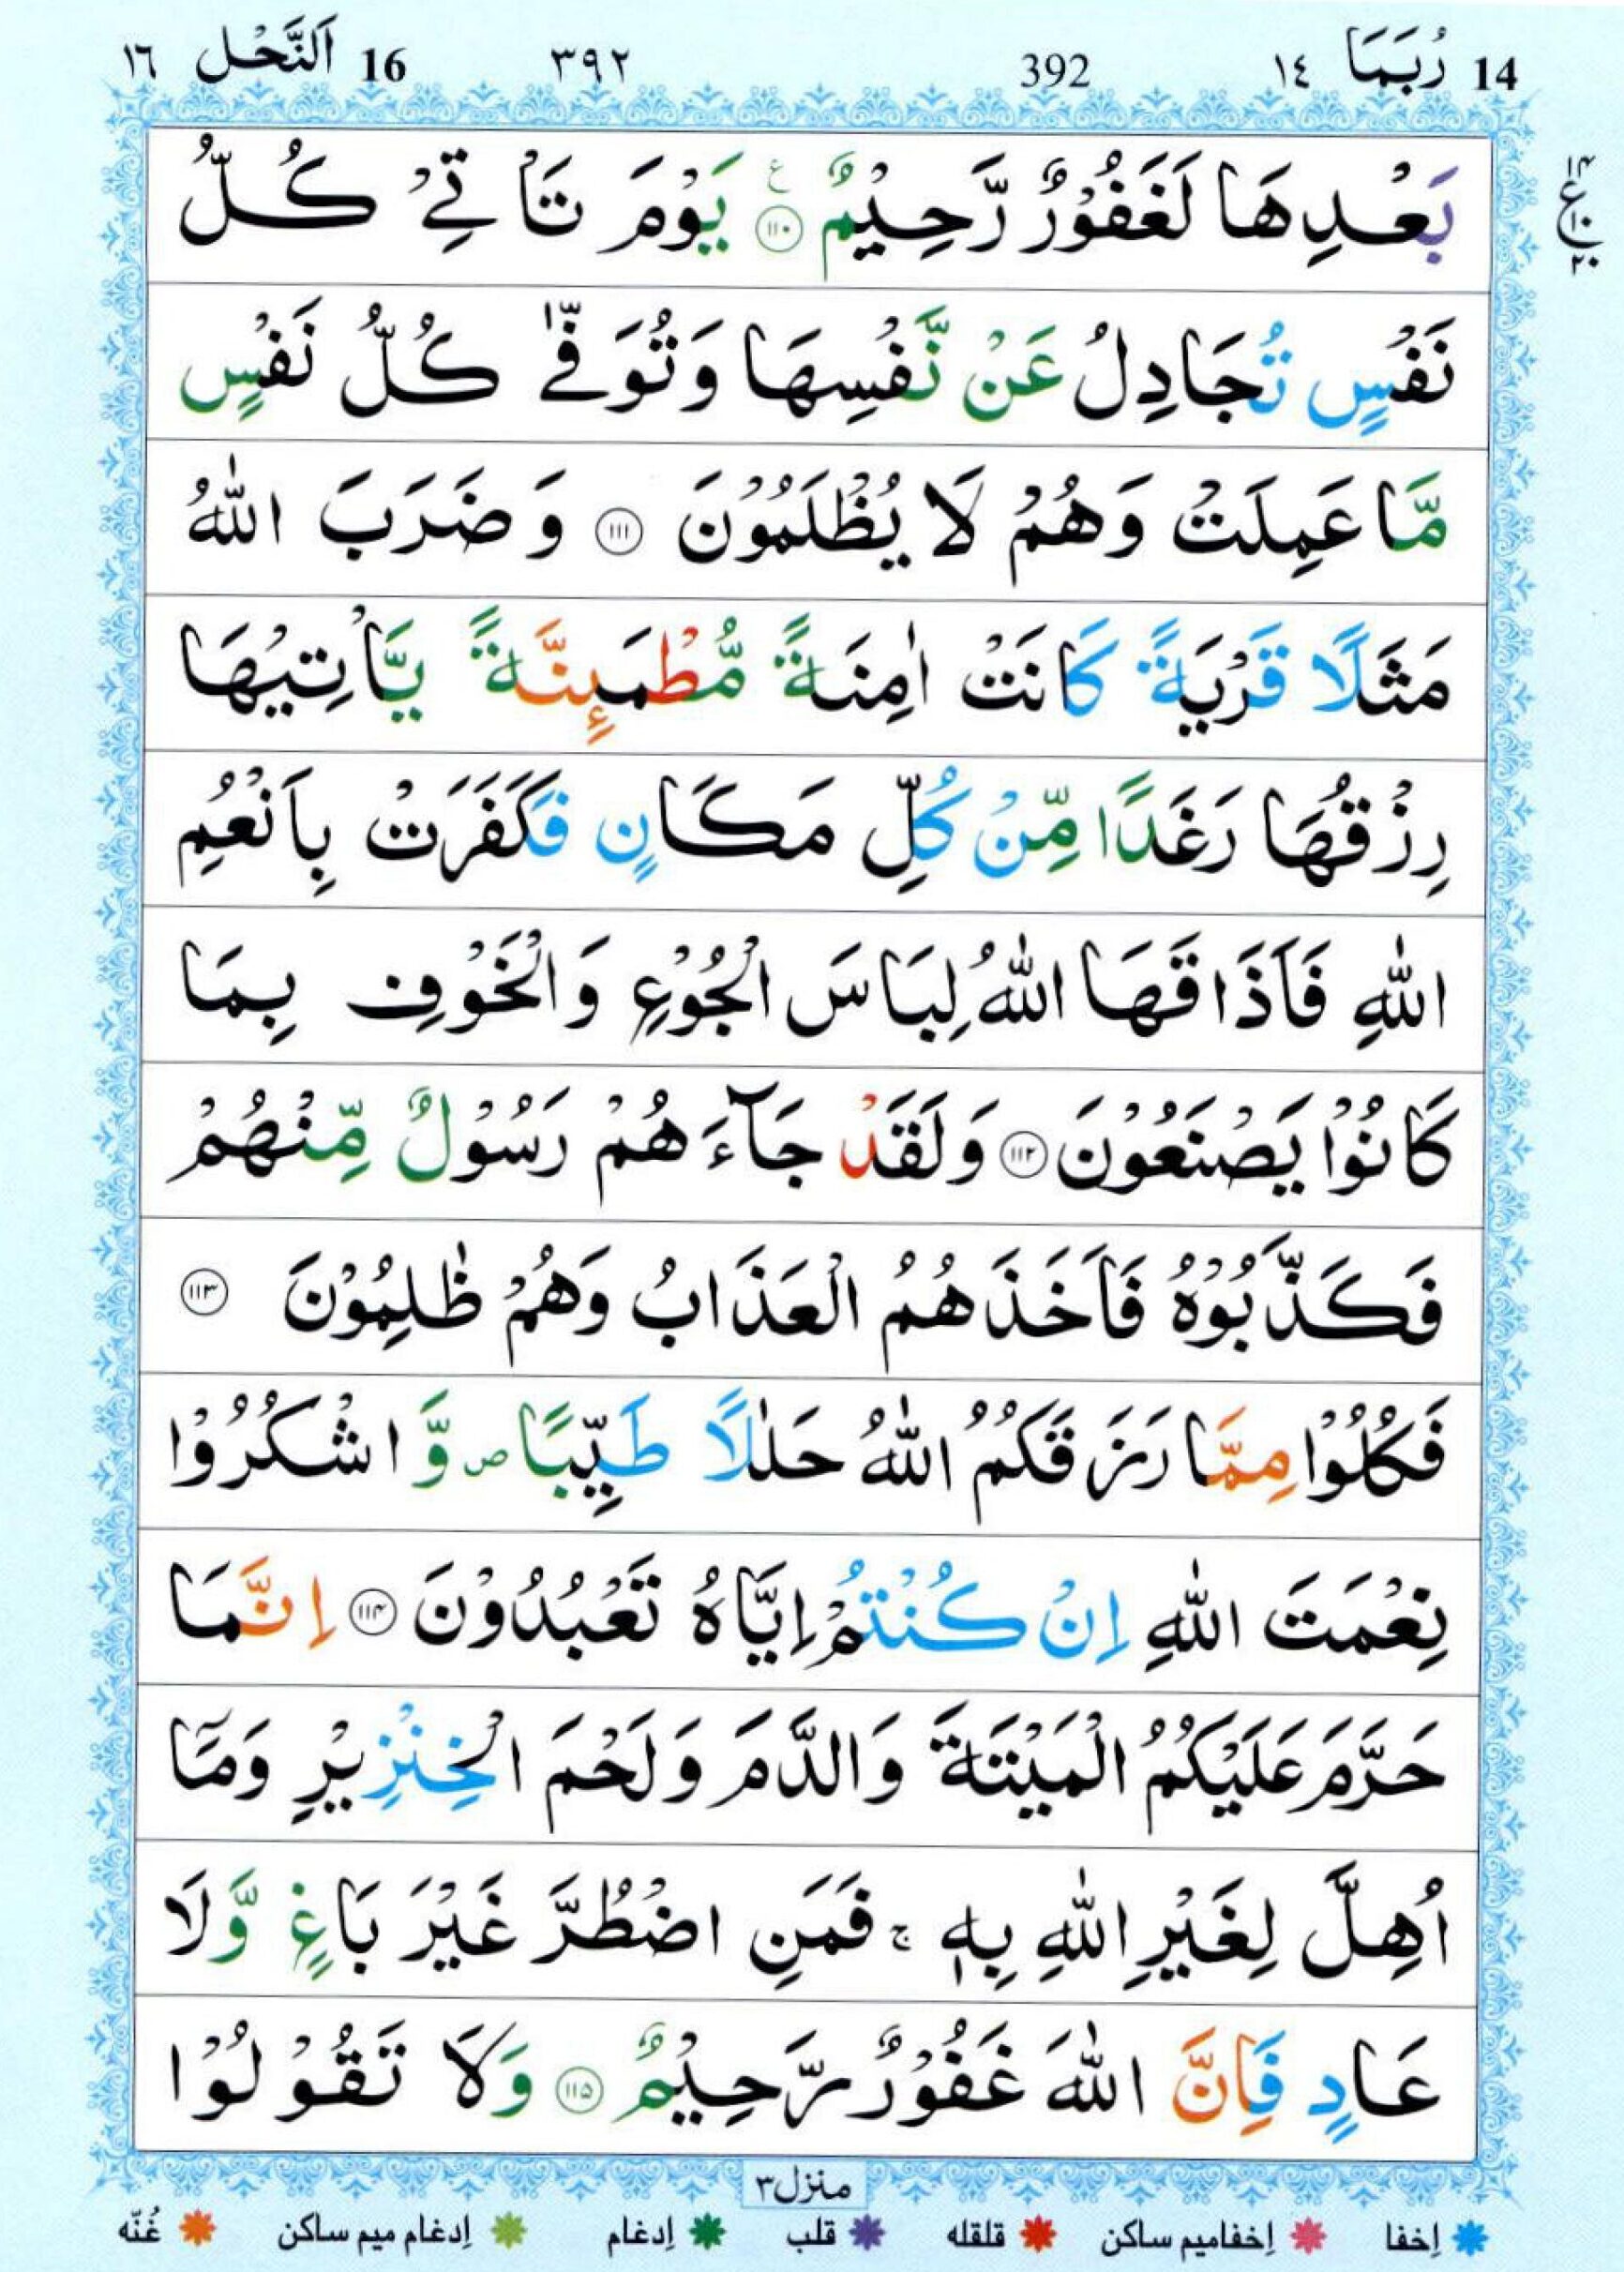 14 رُبَمَا ١٤ 392 ٣٩٢ 16 اَلنَّحْل ١٦
بَعْدِهَا لَغَفُوْرٌ رَّحِيْمٌ ۝١١٠ ع يَوْمَ تَاْتِيْ كُلُّ
١٤ ع ١٠ ٢٠
نَفْسٍ تُجَادِلُ عَنْ نَّفْسِهَا وَتُوَفّٰى كُلُّ نَفْسٍ
مَّا عَمِلَتْ وَهُمْ لَا يُظْلَمُوْنَ ۝١١١ وَضَرَبَ اللّٰهُ
مَثَلًا قَرْيَةً كَانَتْ اٰمِنَةً مُّطْمَىِٕنَّةً يَّاْتِيْهَا
رِزْقُهَا رَغَدًا مِّنْ كُلِّ مَكَانٍ فَكَفَرَتْ بِاَنْعُمِ
اللّٰهِ فَاَذَاقَهَا اللّٰهُ لِبَاسَ الْجُوْعِ وَالْخَوْفِ بِمَا
كَانُوْا يَصْنَعُوْنَ ۝١١٢ وَلَقَدْ جَآءَهُمْ رَسُوْلٌ مِّنْهُمْ
فَكَذَّبُوْهُ فَاَخَذَهُمُ الْعَذَابُ وَهُمْ ظٰلِمُوْنَ ۝١١٣
فَكُلُوْا مِمَّا رَزَقَكُمُ اللّٰهُ حَلٰلًا طَيِّبًا ص وَّاشْكُرُوْا
نِعْمَتَ اللّٰهِ اِنْ كُنْتُمْ اِيَّاهُ تَعْبُدُوْنَ ۝١١٤ اِنَّمَا
حَرَّمَ عَلَيْكُمُ الْمَيْتَةَ وَالدَّمَ وَلَحْمَ الْخِنْزِيْرِ وَمَآ
اُهِلَّ لِغَيْرِ اللّٰهِ بِهٖ ج فَمَنِ اضْطُرَّ غَيْرَ بَاغٍ وَّلَا
عَادٍ فَاِنَّ اللّٰهَ غَفُوْرٌ رَّحِيْمٌ ۝١١٥ وَلَا تَقُوْلُوْا
منزل٣
اِخفا اِخفامیم ساکن قلقله قلب اِدغام اِدغام میم ساکن غُنّه